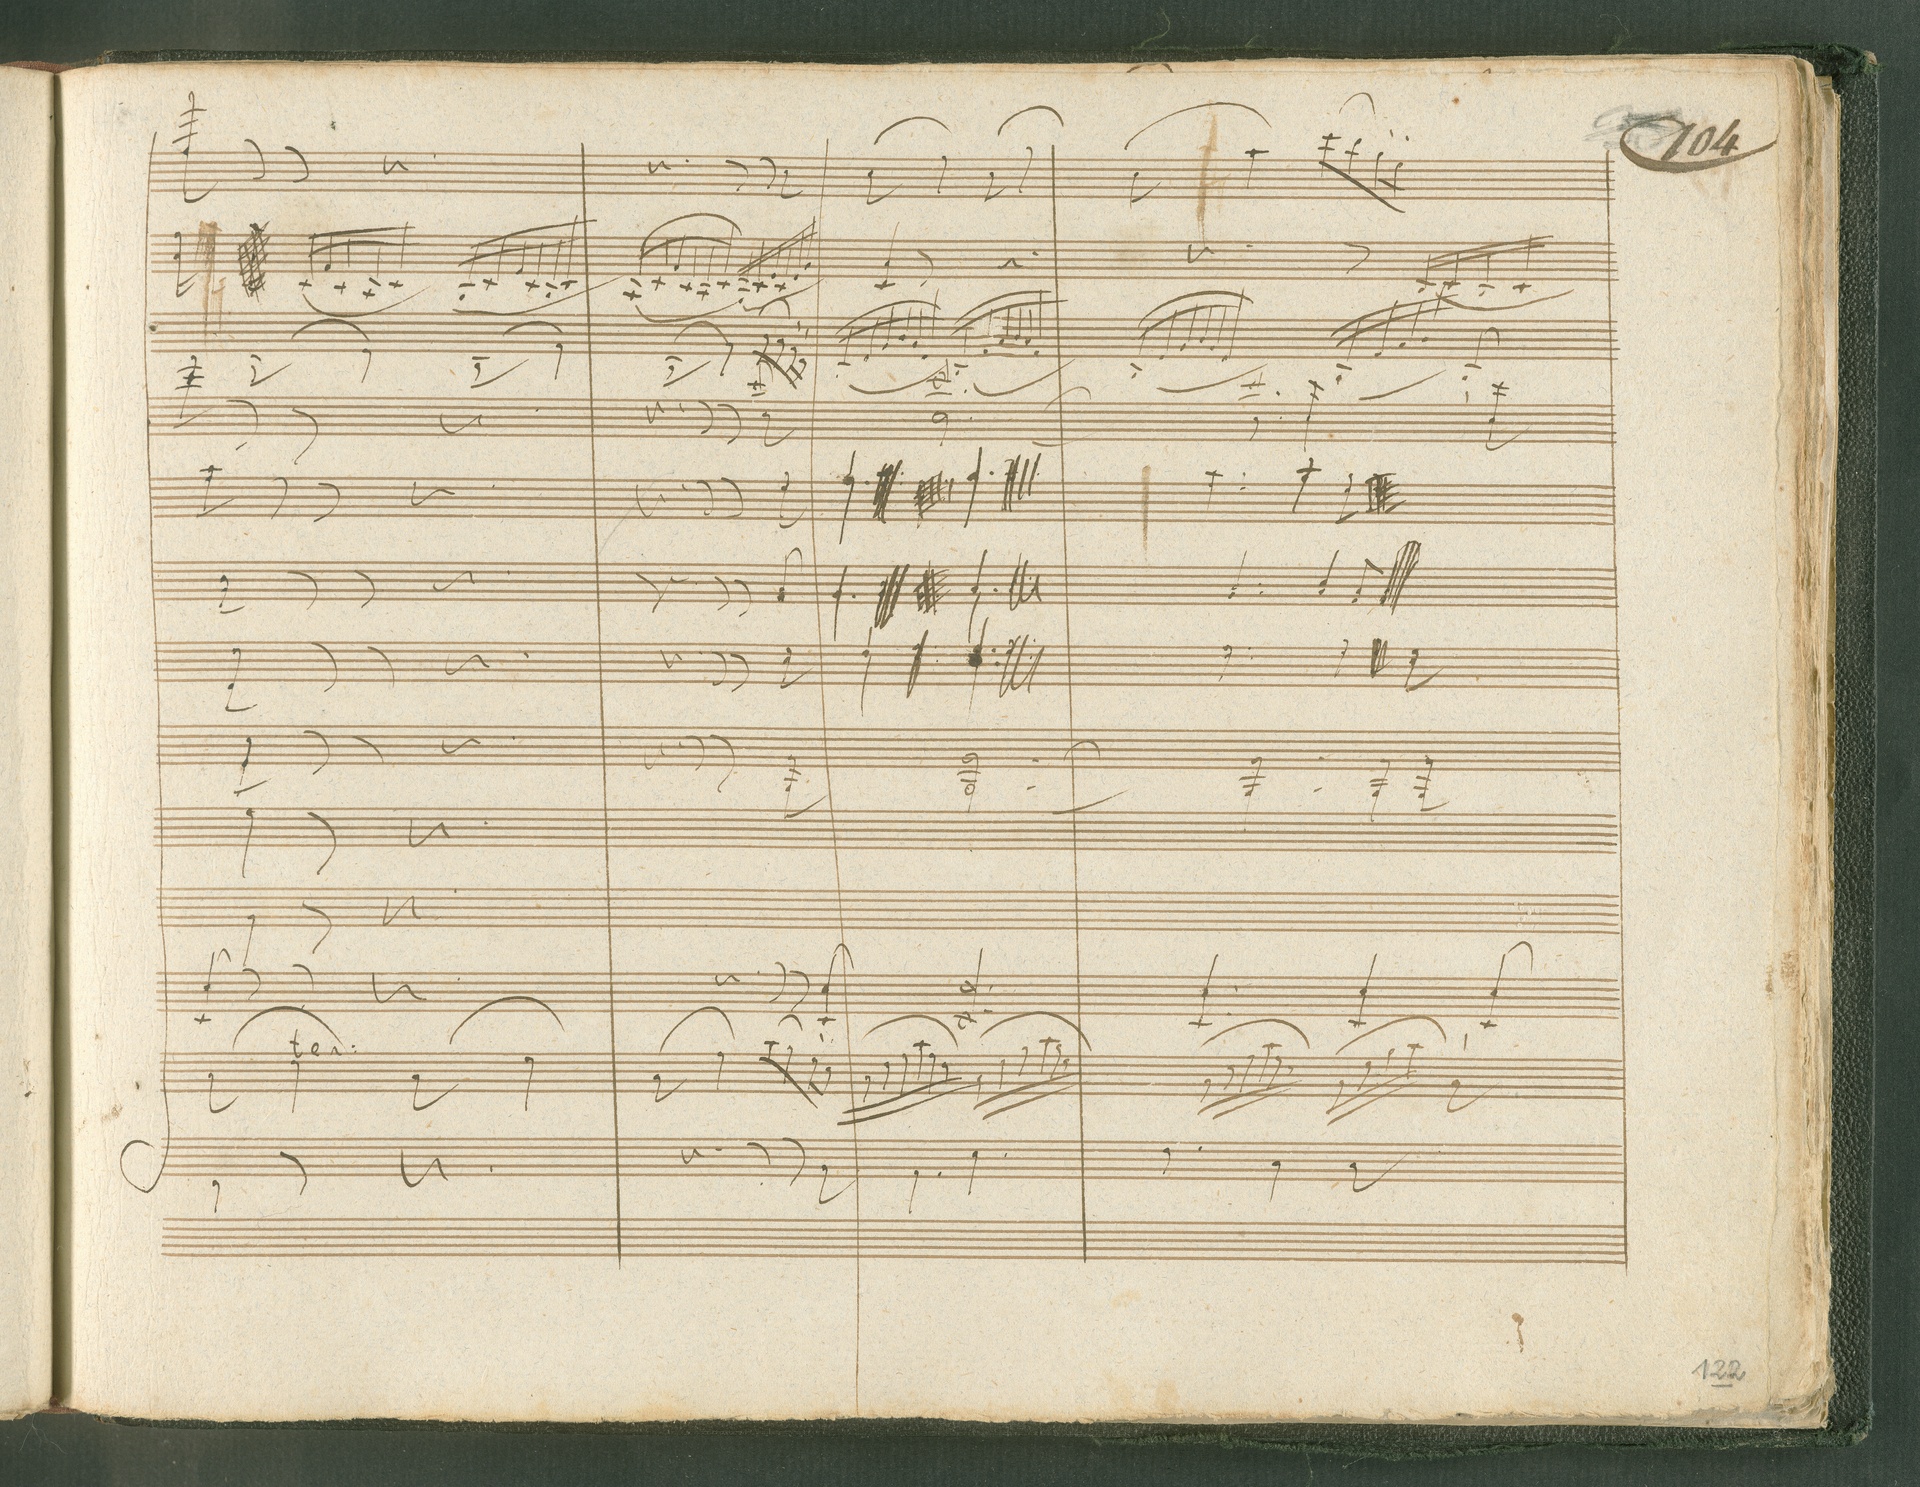 104
ten:
122